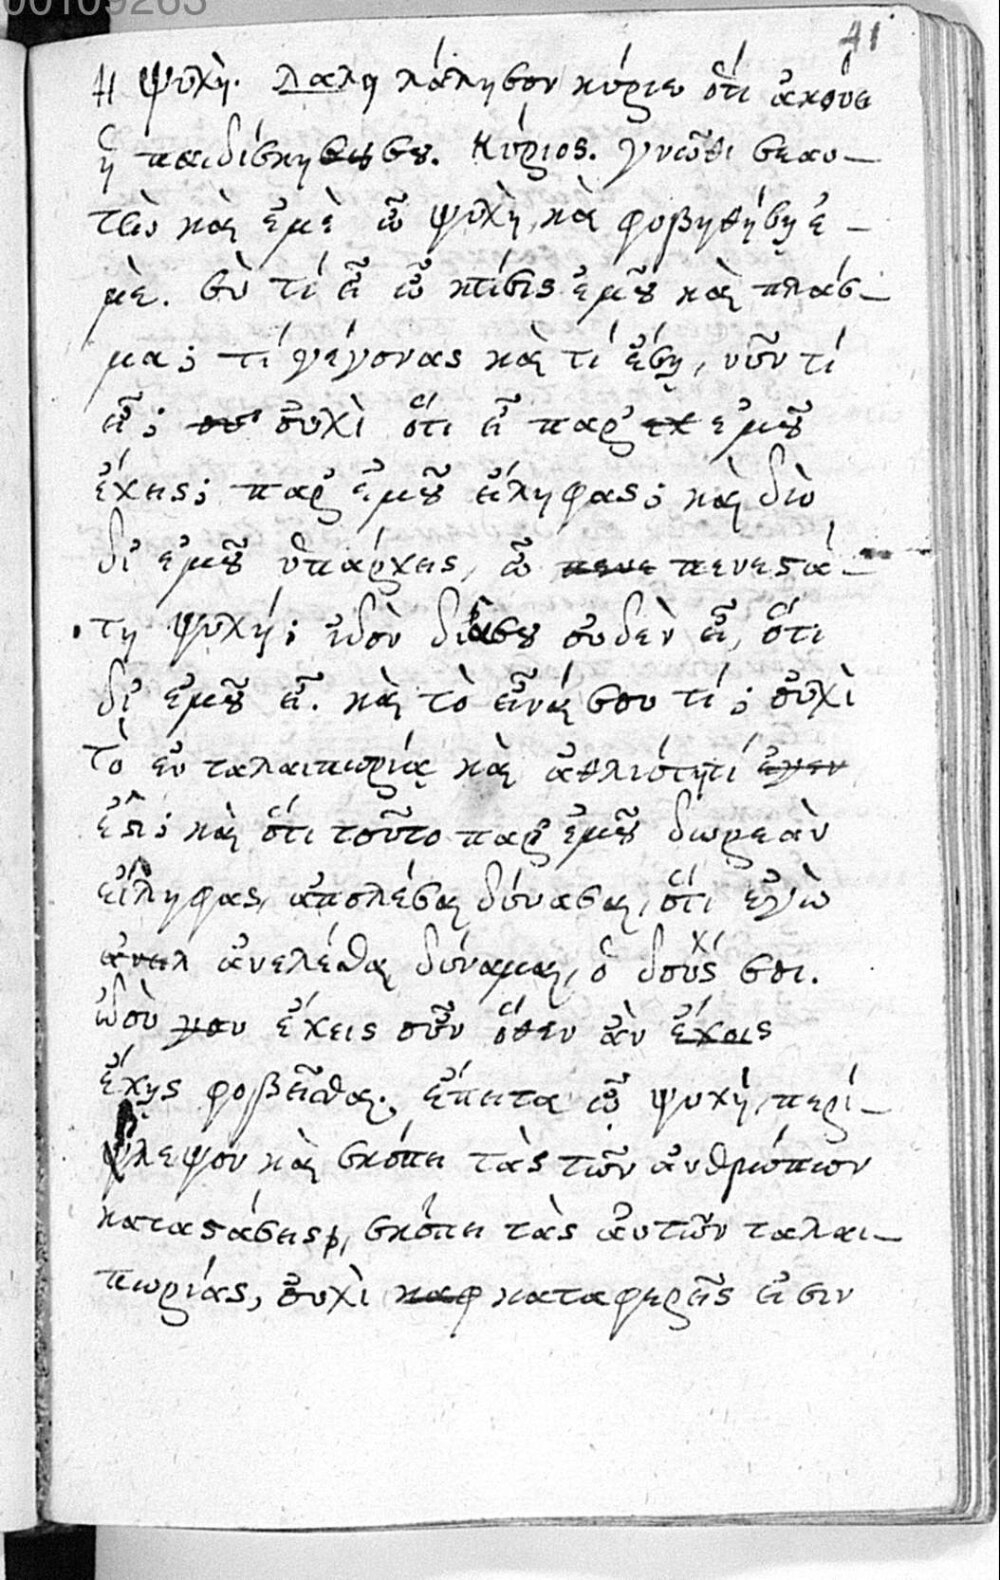 00109263
41
Ἡ ψυχὴ. Λαλη λάλησον κύριε ὅτι ἀκούει
ἡ παιδίσκη σου. Κύριος. γνῶθι σεαυ-
τὴν καὶ ἐμὲ ὦ ψυχὴ, καὶ φοβηθήσῃ ἐ-
μὲ. σὺ τί εἶ ὦ κτίσις ἐμοῦ καὶ πλάσ-
μα; τί γέγονας καὶ τί ἔσῃ, νῦν τί
εἶ; οὐ οὐχὶ ὅτι εἶ παρ' εχ ἐμοῦ
ἔχεις; παρ' ἐμοῦ εἴληφας; καὶ διὸ
δι' ἐμοῦ ὑπάρχεις, ὦ πενε πενεστά-
τη ψυχή; ἰδοὺ διὰ σου οὐδὲν εἶ, ὅτι
δι' ἐμοῦ εἶ. καὶ τὸ εἶναί σου τί; οὐχὶ
τὸ ἐν ταλαιπωρίᾳ καὶ ἀθλιότητί
ἐστι; καὶ ὅτι τοῦτο παρ' ἐμοῦ δωρεὰν
εἴληφας, ἀπολέσαι δύνασαι, ὅτι ἐγὼ
ἀνελ ἀνελέσθαι δύναμαι, ὁ δούς σοι.
ἰδοὺ μου ἔχεις οὖν ὅθεν ἂν ἔχοις
ἔχῃς φοβεῖσθαι. ἔπειτα ὦ ψυχή, περί-
βλεψον καὶ σκόπει τὰς τῶν ἀνθρώπων
καταστάσεις, σκόπει τὰς αὐτῶν ταλαι-
πωρίας, οὐχὶ καφ καταφερεῖς εἰσιν